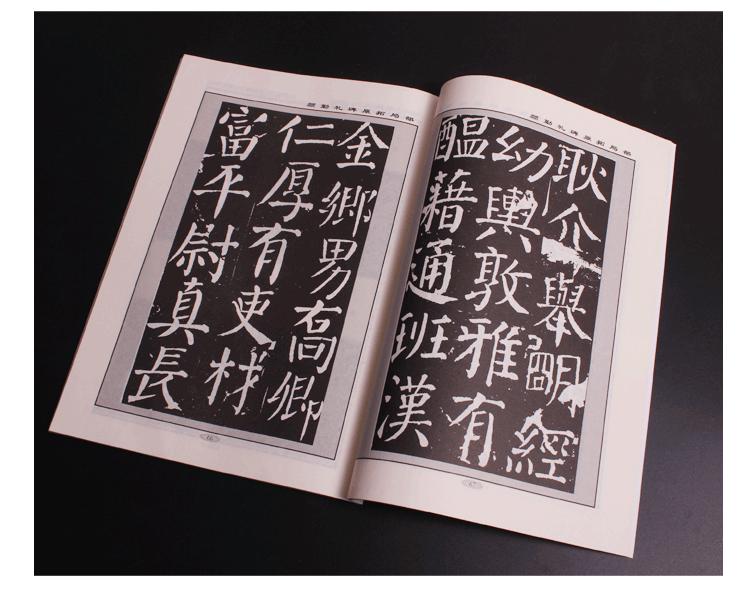 颜勤礼碑原拓局部
金鄉男喬卿
仁厚有吏材
富平尉真長
66
颜勤礼碑原拓局部
耿介舉明經
幼輿敦雅有
醞藉通班漢
67